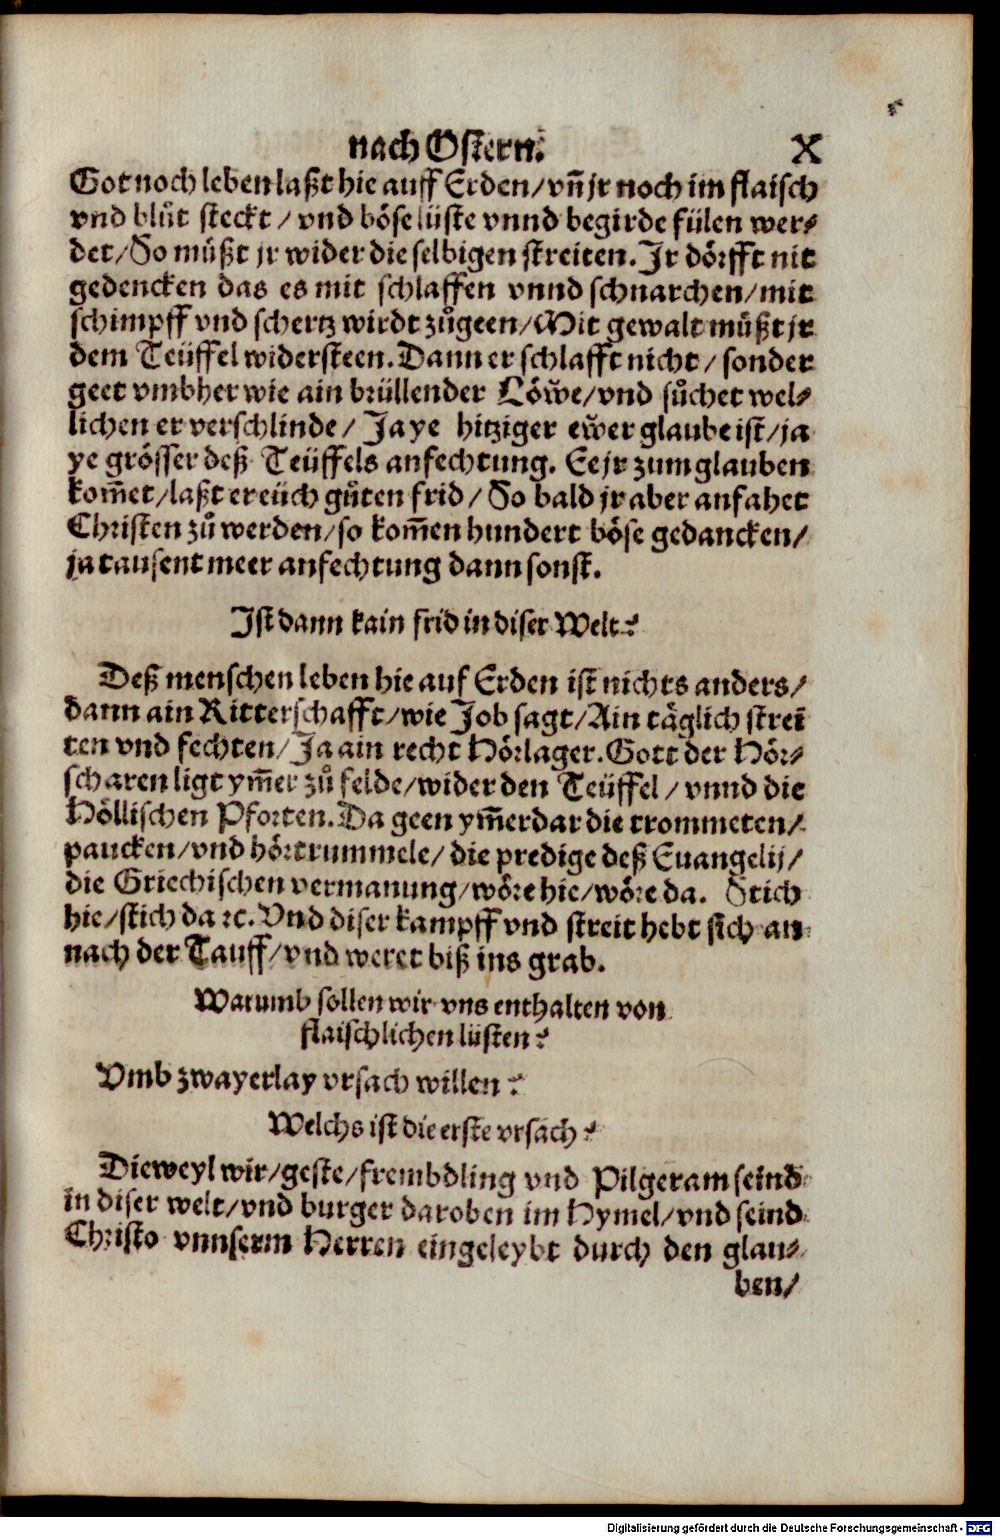 nach Ostern. X
Got noch leben laßt hie auff Erden/vñ jr noch im flaisch
vnd blůt steckt/vnd böse lüste vnnd begirde fülen wer⸗
det/So müßt jr wider die selbigen streiten. Jr dörfft nit
gedencken das es mit schlaffen vnnd schnarchen/mit
schimpff vnd schertz wirdt zůgeen/Mit gewalt müßt jr
dem Teüffel widersteen. Dann er schlafft nicht/sonder
geet vmbher wie ain brüllender Löw̃e/vnd sůchet wel⸗
lichen er verschlinde/ Ja ye hitziger ew̃er glaube ist/ja
ye grösser deß Teüffels anfechtung. Ee jr zum glauben
kom̃et/laßt er eüch gůten frid/So bald jr aber anfahet
Christen zů werden/so kom̃en hundert böse gedancken/
ja tausent meer anfechtung dann sonst.
Ist dann kain frid in diser Welt?
Deß menschen leben hie auf Erden ist nichts anders/
dann ain Ritterschafft/wie Job sagt/Ain täglich strei
ten vnd fechten/Ja ain recht Hörlager. Gott der Hör⸗
scharen ligt ym̃er zů felde/wider den Teüffel/vnnd die
Höllischen Pforten. Da geen ym̃erdar die trommeten/
paucken/vnd hörtrummele/die predige deß Euangelij/
die Griechischen vermanung/wöre hie/wöre da. Stich
hie/stich da ꝛc. Vnd diser kampff vnd streit hebt sich an
nach der Tauff/vnd weret biß ins grab.
Warumb sollen wir vns enthalten von
flaischlichen lüsten?
Vmb zwayerlay vrsach willen?
Welchs ist die erste vrsach?
Dieweyl wir/geste/frembdling vnd Pilgeram seind
in diser welt/vnd burger daroben im Hymel/vnd seind
Christo vnnserm Herren eingeleybt durch den glau⸗
ben/
Digitalisierung gefördert durch die Deutsche Forschungsgemeinschaft - DFG